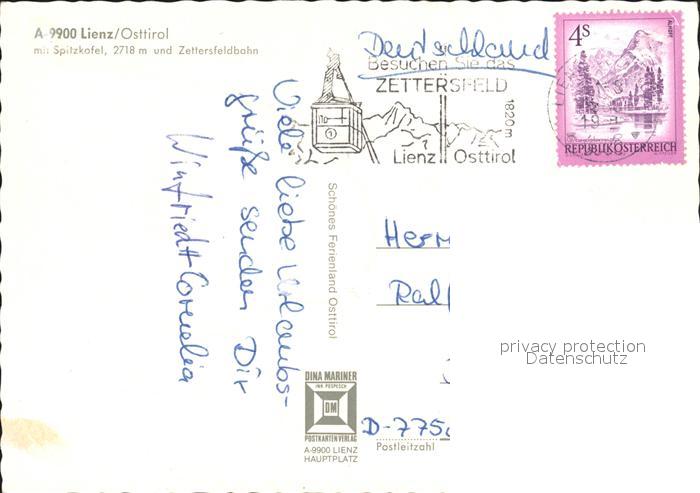 A-9900 Lienz/Osttirol
mit Spitzkofel, 2718 m und Zettersfeldbahn
Viele liebe Urlaubs-
grüße senden Dir
Winfried + Cornelia
Schönes Ferienland Osttirol
DINA MARINER
INH. POSPESCH
DM
POSTKARTENVERLAG
A-9900 LIENZ
HAUPTPLATZ
Deutschland
Besuchen Sie das
ZETTERSFELD
1820 m
Lienz Osttirol
4S
REPUBLIK ÖSTERREICH
Herrn
Ralf
D-775
Postleitzahl
privacy protection
Datenschutz